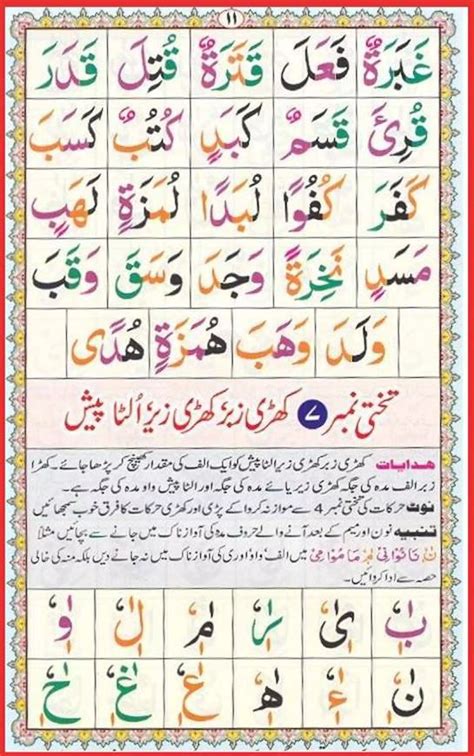 ١١
غَبَرَةٌ فَعَلَ قَتَرَةٌ قُتِلَ قَدَرَ
قُرِئَ قَسَمٌ كَبَدٍ كُتُبٌ كَسَبَ
كَفَرَ كُفُوًا لُبَدًا لُمَزَةٍ لَهَبٍ
مَسَدٍ نَخِرَةً وَجَدَ وَسَقَ وَقَبَ
وَلَدَ وَهَبَ هُمَزَةٍ هُدًى
تختی نمبر ۷ کھڑی زبر کھڑی زیر اُلٹا پیش
ھدایات کھڑی زبر کھڑی زیر الٹا پیش کو ایک الف کی مقدار کھینچ کر پڑھا جائے۔ کھڑا
زبر الف مدہ کی جگہ کھڑی زیر یائے مدہ کی جگہ اور الٹا پیش واو مدہ کی جگہ ہے۔
نوٹ حرکات کی تختی نمبر 4 سے موازنہ کروا کے پڑھو اور کھڑی حرکات کا فرق خوب سمجھائیں
تنبیہ نون اور میم کے بعد آنے والے حروف مدہ کی آواز ناک میں جانے سے بچائیں مثلاً
میں الف واؤ اور ی کی آواز ناک میں نہ جانے دیں بلکہ منہ کی خالی
حصہ سے ادا کروائیں۔
بٰٖٗ ىٰٖٗ رٰٖٗ مٰٖٗ لٰٖٗ وٰٖٗ
نٰٖٗ ءٰٖٗ هٰٖٗ عٰٖٗ غٰٖٗ حٰٖٗ